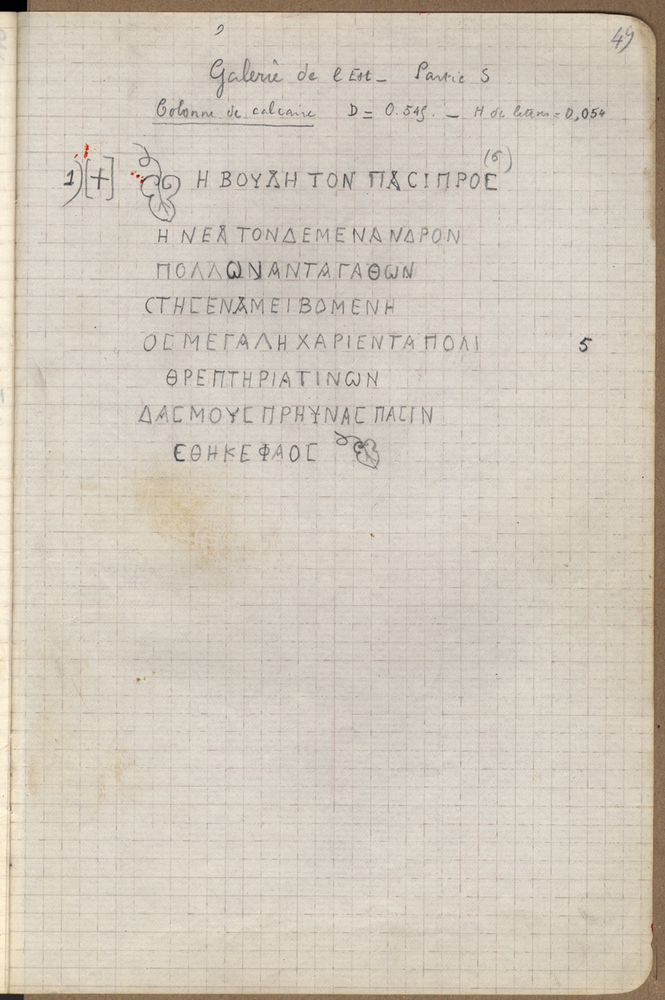 49
Galerie de l'Est - Partie S
Colonne de calcaire D = 0.545. - H de lettres = 0,054
(σ)
1) [+] Η ΒΟΥΛΗ ΤΟΝ ΠΑCΙ ΠΡΟC
Η ΝΕΑ ΤΟΝΔΕ ΜΕΝΑΝΔΡΟΝ
ΠΟΛΛΩΝ ΑΝΤΑΓΑΘΩΝ
CΤΗCΕΝ ΑΜΕΙΒΟΜΕΝΗ
ΟC ΜΕΓΑΛΗ ΧΑΡΙΕΝΤΑ ΠΟΛΙ 5
ΘΡΕΠΤΗΡΙΑ ΤΙΝΩΝ
ΔΑCΜΟΥC ΠΡΗΥΝΑC ΠΑCΙΝ
ΕΘΗΚΕ ΦΑΟC